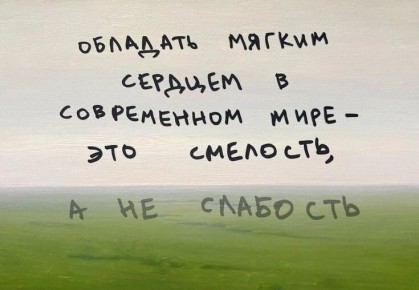 ОБЛАДАТЬ МЯГКИМ
СЕРДЦЕМ В
СОВРЕМЕННОМ МИРЕ –
ЭТО СМЕЛОСТЬ,
А НЕ СЛАБОСТЬ